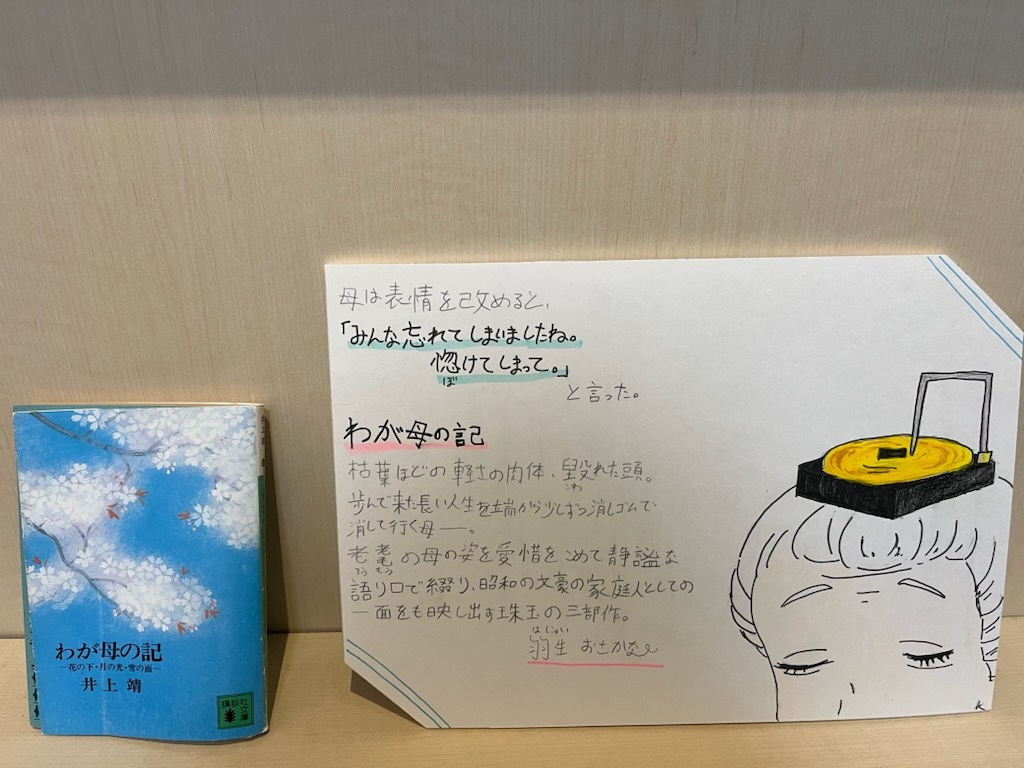 わが母の記
―花の下・月の光・雪の面―
井上 靖
講談社
文庫
母は表情を改めると、
「みんな忘れてしまいましたね。
惚けてしまって。」
ぼ
と言った。
わが母の記
枯葉ほどの軽さの肉体、毀れた頭。
こわ
歩んで来た長い人生を端から少しずつ消しゴムで
消して行く母――。
老耄の母の姿を愛惜をこめて静謐な
ろうもう
語り口で綴り、昭和の文豪の家庭人としての
一面をも映し出す珠玉の三部作。
はにゅう
羽生 おさかな
K